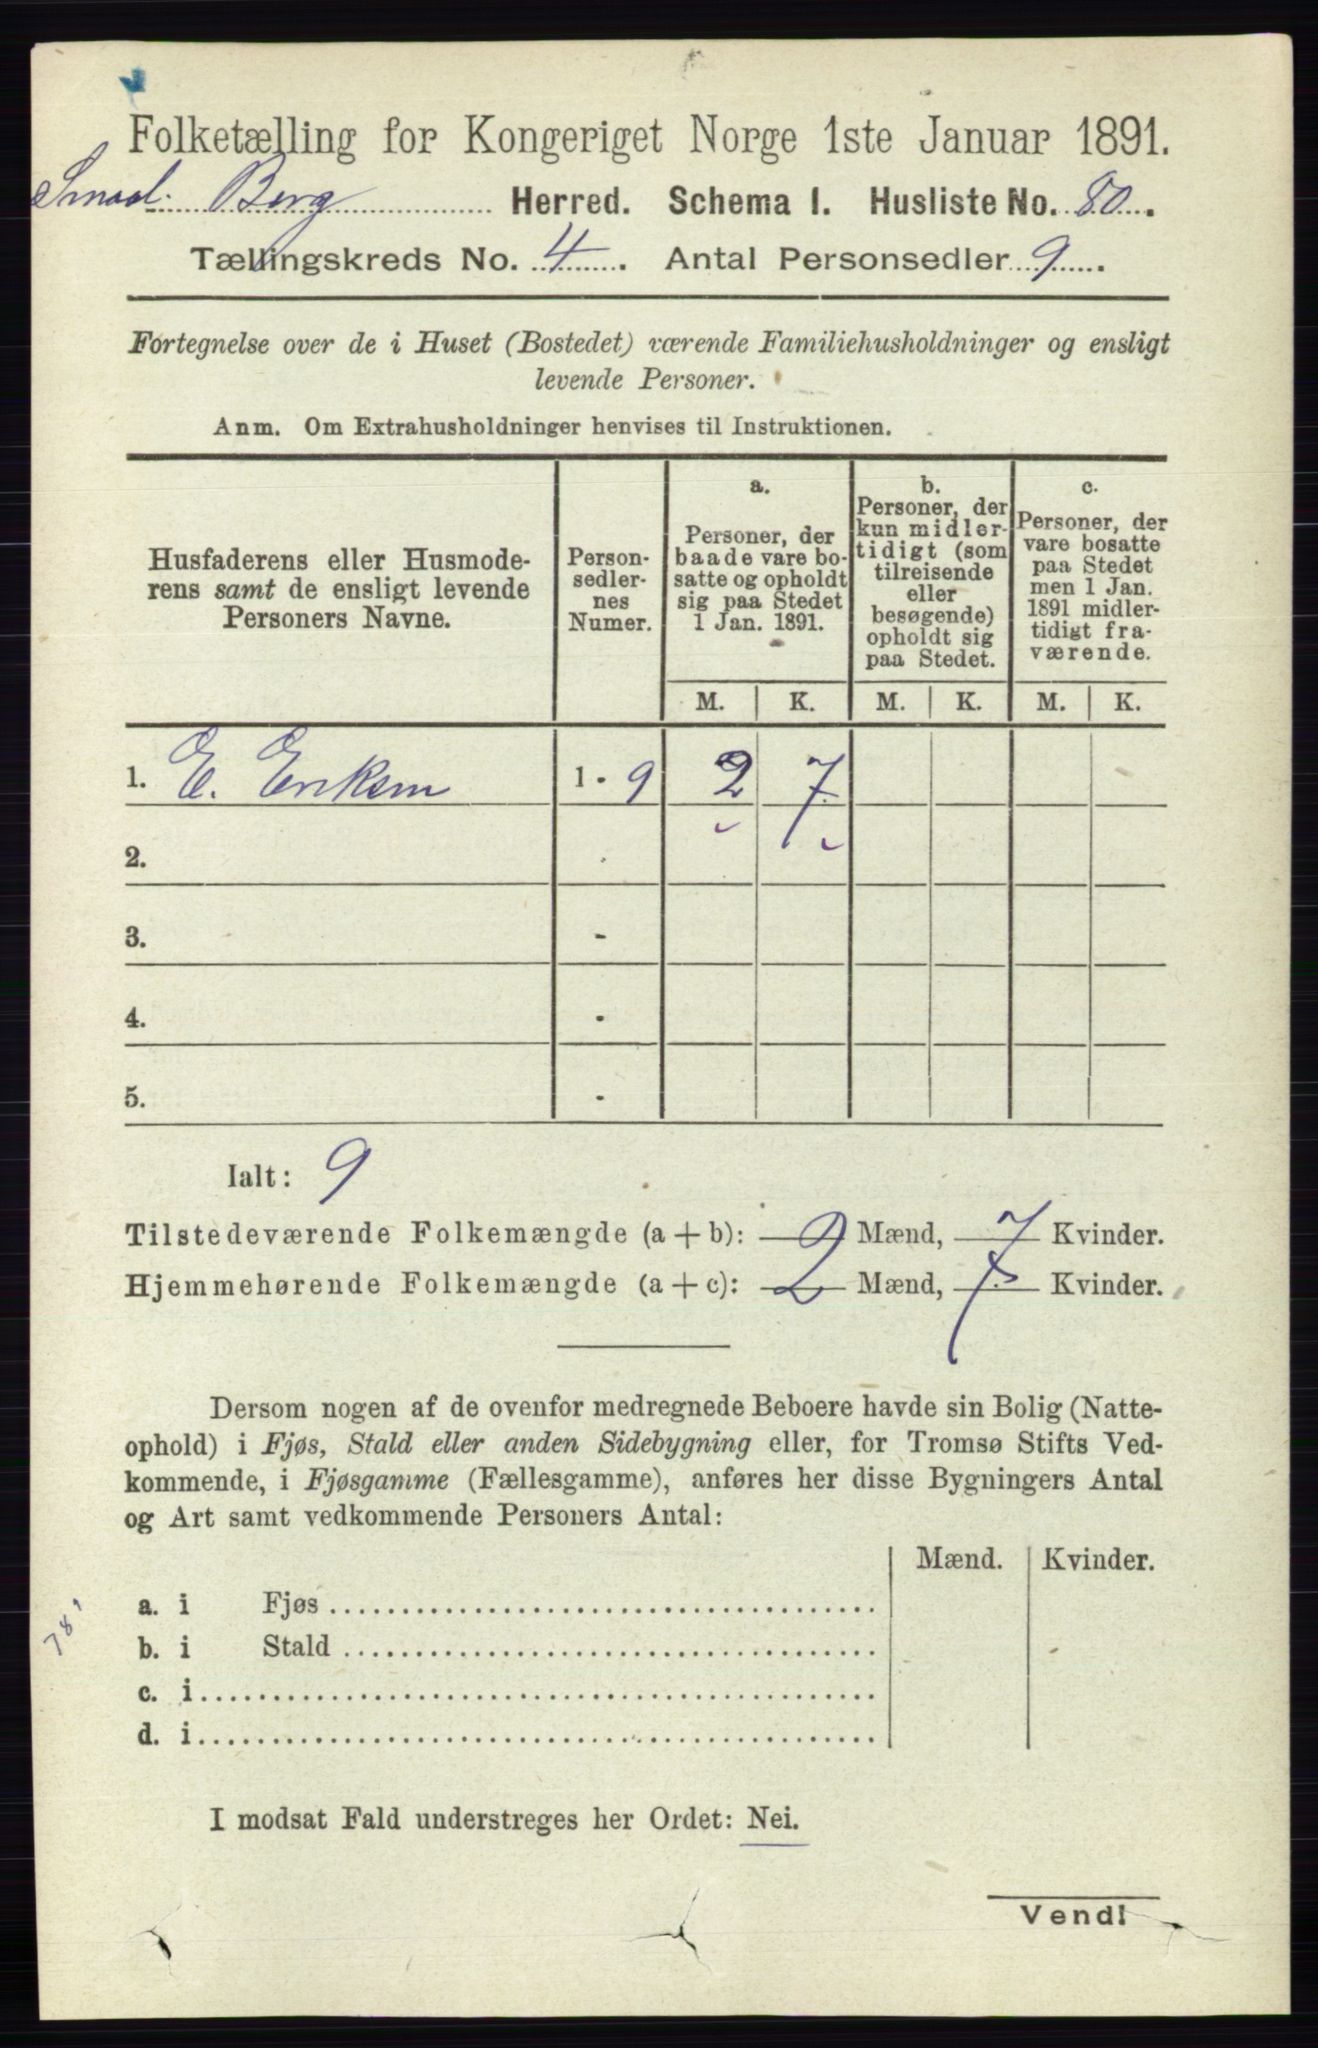 Folketælling for Kongeriget Norge 1ste Januar 1891.
Smaal. Berg Herred. Schema I. Husliste No. 80.
Tællingskreds No. 4. Antal Personsedler 9.
Fortegnelse over de i Huset (Bostedet) værende Familiehusholdninger og ensligt
levende Personer.
Anm. Om Extrahusholdninger henvises til Instruktionen.
Husfaderens eller Husmode-
rens samt de ensligt levende
Personers Navne.
Person-
sedler-
nes
Numer.
a.
Personer, der
baade vare bo-
satte og opholdt
sig paa Stedet
1 Jan. 1891.
b.
Personer, der
kun midler-
tidigt (som
tilreisende
eller
besøgende)
opholdt sig
paa Stedet.
c.
Personer, der
vare bosatte
paa Stedet
men 1 Jan.
1891 midler-
tidigt fra-
værende.
M. K. M. K. M. K.
1. E. Eriksen 1 - 9 2 7
2.
3. -
4. -
5. -
Ialt: 9
Tilstedeværende Folkemængde (a + b): 2 Mænd, 7 Kvinder.
Hjemmehørende Folkemængde (a + c): 2 Mænd, 7 Kvinder.
Dersom nogen af de ovenfor medregnede Beboere havde sin Bolig (Natte-
ophold) i Fjøs, Stald eller anden Sidebygning eller, for Tromsø Stifts Ved-
kommende, i Fjøsgamme (Fællesgamme), anføres her disse Bygningers Antal
og Art samt vedkommende Personers Antal:
Mænd. Kvinder.
a. i Fjøs
b. i Stald
c. i
d. i
78
I modsat Fald understreges her Ordet: Nei.
Vend!